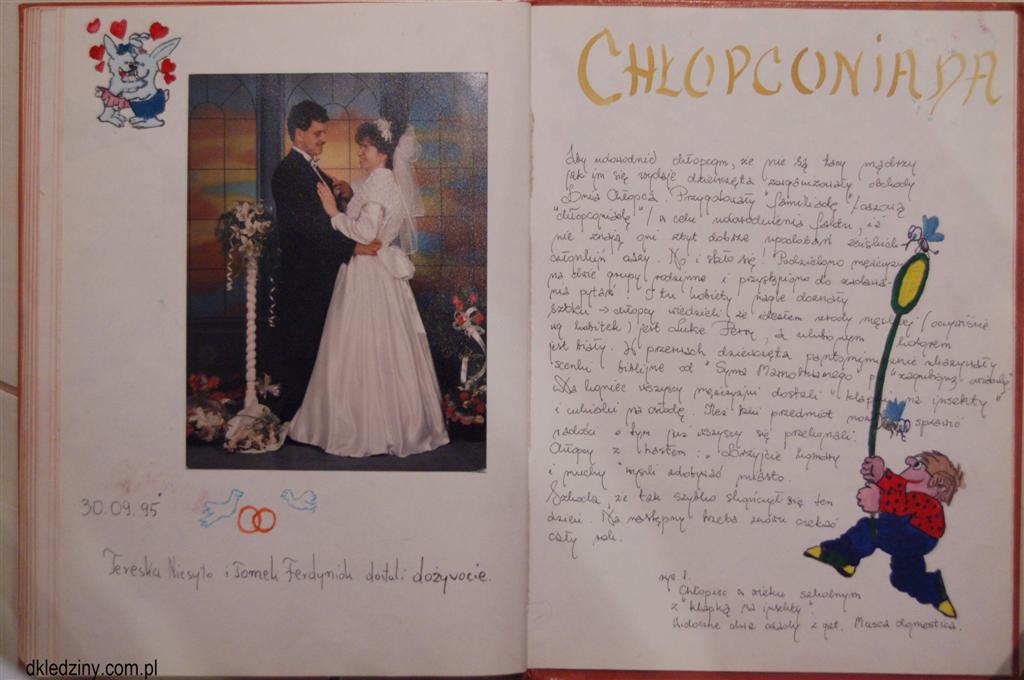 30.09.95
Tereska Niesyto i Tomek Ferdyniok dostali dożywocie.
CHŁOPCONIADA
Aby udowodnić chłopcom, że nie są tacy mądrzy
jak im się wydaje dziewczęta zorganizowały obchody
Dnia Chłopca. Przygotowały "familiadę" /
"chłopconiadę" / w celu udowodnienia faktu, iż
nie znają oni zbyt dobrze upodobań żeńskich
członkiń oazy. No i stało się! Podzielono mężczyzn
na dwie grupy rodzinne i przystąpiono do zadawa-
nia pytań! I tu kobiety nagle doznały
szoku → chłopcy wiedzieli, że ideałem urody męskiej / oczywiście
wg kobitek) jest Luke Perry, a ulubionym kolorem
jest biały. W przerwach dziewczęta pantomimicznie ukazywały
scenki biblijne od "Syna Marnotrawnego" po "zagubioną owieczkę"
Na koniec wszyscy mężczyźni dostali "klapki na insekty"
i cukierki na osłodę. Ileż taki przedmiot może sprawić
radości o tym już wszyscy się przekonali.
Chłopcy z hasłem: "Drżyjcie komary
i muchy" wyszli zdobywać miasto.
Szkoda, że tak szybko skończył się ten
dzień. Na następny trzeba znów czekać
cały rok.
rys. 1.
Chłopiec w wieku szkolnym
z "klapką na insekty".
Widoczne dwie owady z gat. Musca domestica.
dkledziny.com.pl